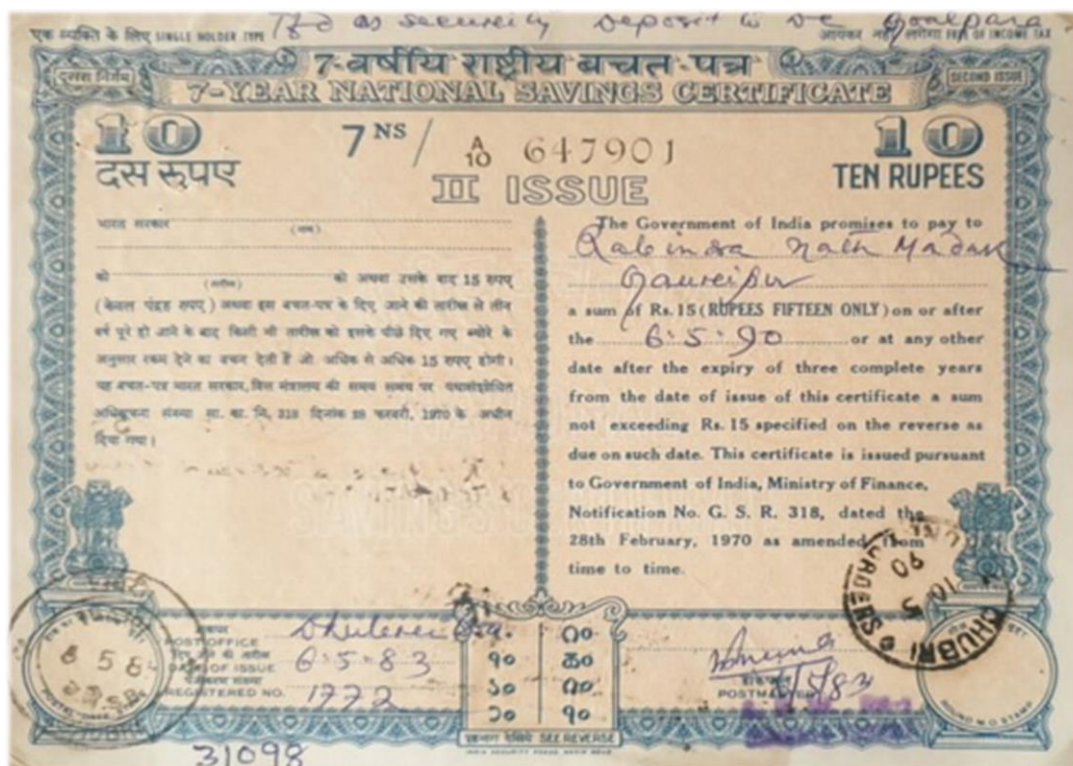 Tfd as security Deposit to De Goalpara
एक व्यक्ति के लिए SINGLE HOLDER TYPE
आयकर नहीं लगेगा FREE OF INCOME TAX
दूसरा निर्गम
7-वर्षीय राष्ट्रीय बचत-पत्र
SECOND ISSUE
7-YEAR NATIONAL SAVINGS CERTIFICATE
10
दस रूपए
7 NS / A/10 647901
II ISSUE
10
TEN RUPEES
भारत सरकार
(नाम)
को (तारीख) को अथवा उसके बाद 15 रुपए
(केवल पंद्रह रुपए) अथवा इस बचत-पत्र के दिए जाने की तारीख से तीन
वर्ष पूरे हो जाने के बाद किसी भी तारीख को इसके पीछे दिए गए ब्योरे के
अनुसार रकम देने का वचन देती है जो अधिक से अधिक 15 रुपए होगी।
यह बचत-पत्र भारत सरकार, वित्त मंत्रालय की समय समय पर यथासंशोधित
अधिसूचना संख्या सा. का. नि. 318 दिनांक 28 फरवरी, 1970 के अधीन
दिया गया।
The Government of India promises to pay to
Rabindra Nath
Gauripur
a sum of Rs. 15 (RUPEES FIFTEEN ONLY) on or after
the 6.5.90 or at any other
date after the expiry of three complete years
from the date of issue of this certificate a sum
not exceeding Rs. 15 specified on the reverse as
due on such date. This certificate is issued pursuant
to Government of India, Ministry of Finance,
Notification No. G. S. R. 318, dated the
28th February, 1970 as amended from
time to time.
डाकघर
POST OFFICE
दिए जाने की तारीख
DATE OF ISSUE 6.5.83
पंजीकरण संख्या
REGISTERED NO. 1772
6 5 8
DHUBRI
10 5
90
डाकपाल
POSTMASTER
6/5/83
ROUND M.O. STAMP
कृपया पीछे देखिये SEE REVERSE
INDIA SECURITY PRESS, NASIK ROAD
31098